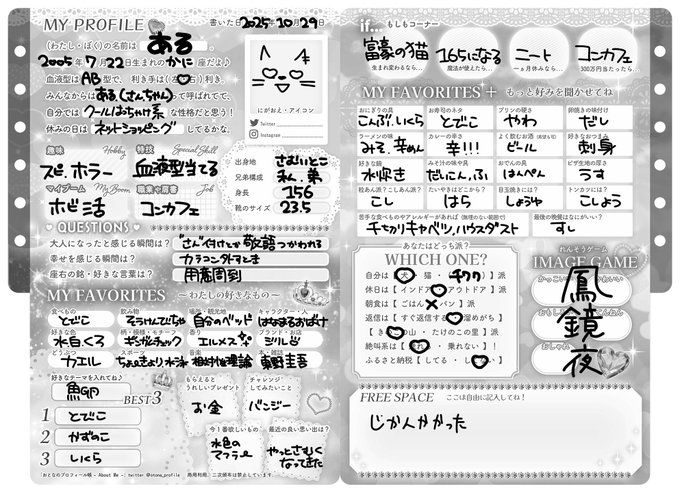 MY PROFILE
書いた日 2025年10月29日
(わたし・ぼく)の名前は ある 。
2005年7月22日生まれのかに座だよ♪
血液型はAB型で、利き手は(左・右)利き。
みんなからは ある(さんちゃん) って呼ばれてて、
自分では クールはっちゃけ系 な性格だと思う!
休みの日は ネットショッピング してるかな。
にがおえ・アイコン
Twitter
Instagram
趣味 Hobby
スピ、ホラー
特技 Special Skill
血液型当てる
マイブーム My Boom
ホビ活
職業や肩書 Job
コンカフェ
出身地 さむいとこ
兄弟構成 私、弟
身長 156
靴のサイズ 23.5
QUESTIONS
大人になったと感じる瞬間は? "さん"付けとか敬語つかわれる
幸せを感じる瞬間は? カラコン外すとき
座右の銘・好きな言葉は? 用意周到
MY FAVORITES ~わたしの好きなもの~
食べもの とでこ
飲みもの そうけんびちゃ
場所・観光地 自分のベッド
キャラクター・人 はなまるおばけ
好きな色 水、白、くろ
柄・模様・モチーフ ギンガムチェック
香り エルメス
ブランド・お店 ジル
どうぶつ カエル
スポーツ
音楽 相対性理論
本・雑誌 東野圭吾
好きなテーマを入れてね♪
魚卵 BEST3
1 とでこ
2 かずのこ
3 いくら
もらえると
うれしいプレゼント
お金
チャレンジ
してみたいこと
バンジー
今1番欲しいもの
水色の
マフラー
最近の良い思い出は?
やっとさむく
なってきた
(おとなのプロフィール帳 - About Me -) twitter @otona_profile 商用利用、二次頒布は禁止しています。
if... もしもコーナー
富豪の猫
生まれ変わるなら…
165になる
魔法が使えたら…
ニート
一ヵ月休みなら…
コンカフェ
300万円当たったら…
MY FAVORITES + もっと好みを聞かせてね
おにぎりの具 こんぶ、いくら
お寿司のネタ とでこ
プリンの硬さ やわ
卵焼きの味付け だし
ラーメンの味 みそ、辛めん
カレーの辛さ 辛!!!
よく飲むお酒 ビール
好きなおつまみ 刺身
好きな鍋 水炊き
みそ汁の味や具 だいこん、ふ
おでんの具 はんぺん
ピザ生地の厚さ うす
粒あん派?こしあん派? こし
たいやきはどこから? はら
目玉焼きには? しょうゆ
トンカツには? こしょう
苦手な食べものやアレルギーがあれば
千ぎりキャベツ、ハウスダスト
最後の晩餐はなにがいい?
すし
あなたはどっち派?
WHICH ONE?
自分は【 犬 ・ 猫 ・ チワワ 】派
休日は【 インドア・アウトドア 】派
朝食は【 ごはん・パン 】派
返信は【 すぐ返信する・溜めがち 】
【 きのこの山・たけのこの里 】派
絶叫系は【 乗れる ・ 乗れない 】!
ふるさと納税【 してる ・ してない 】
れんそうゲーム
IMAGE GAME
鳳
鏡
夜
FREE SPACE ここは自由に記入してね!
じかんかかった